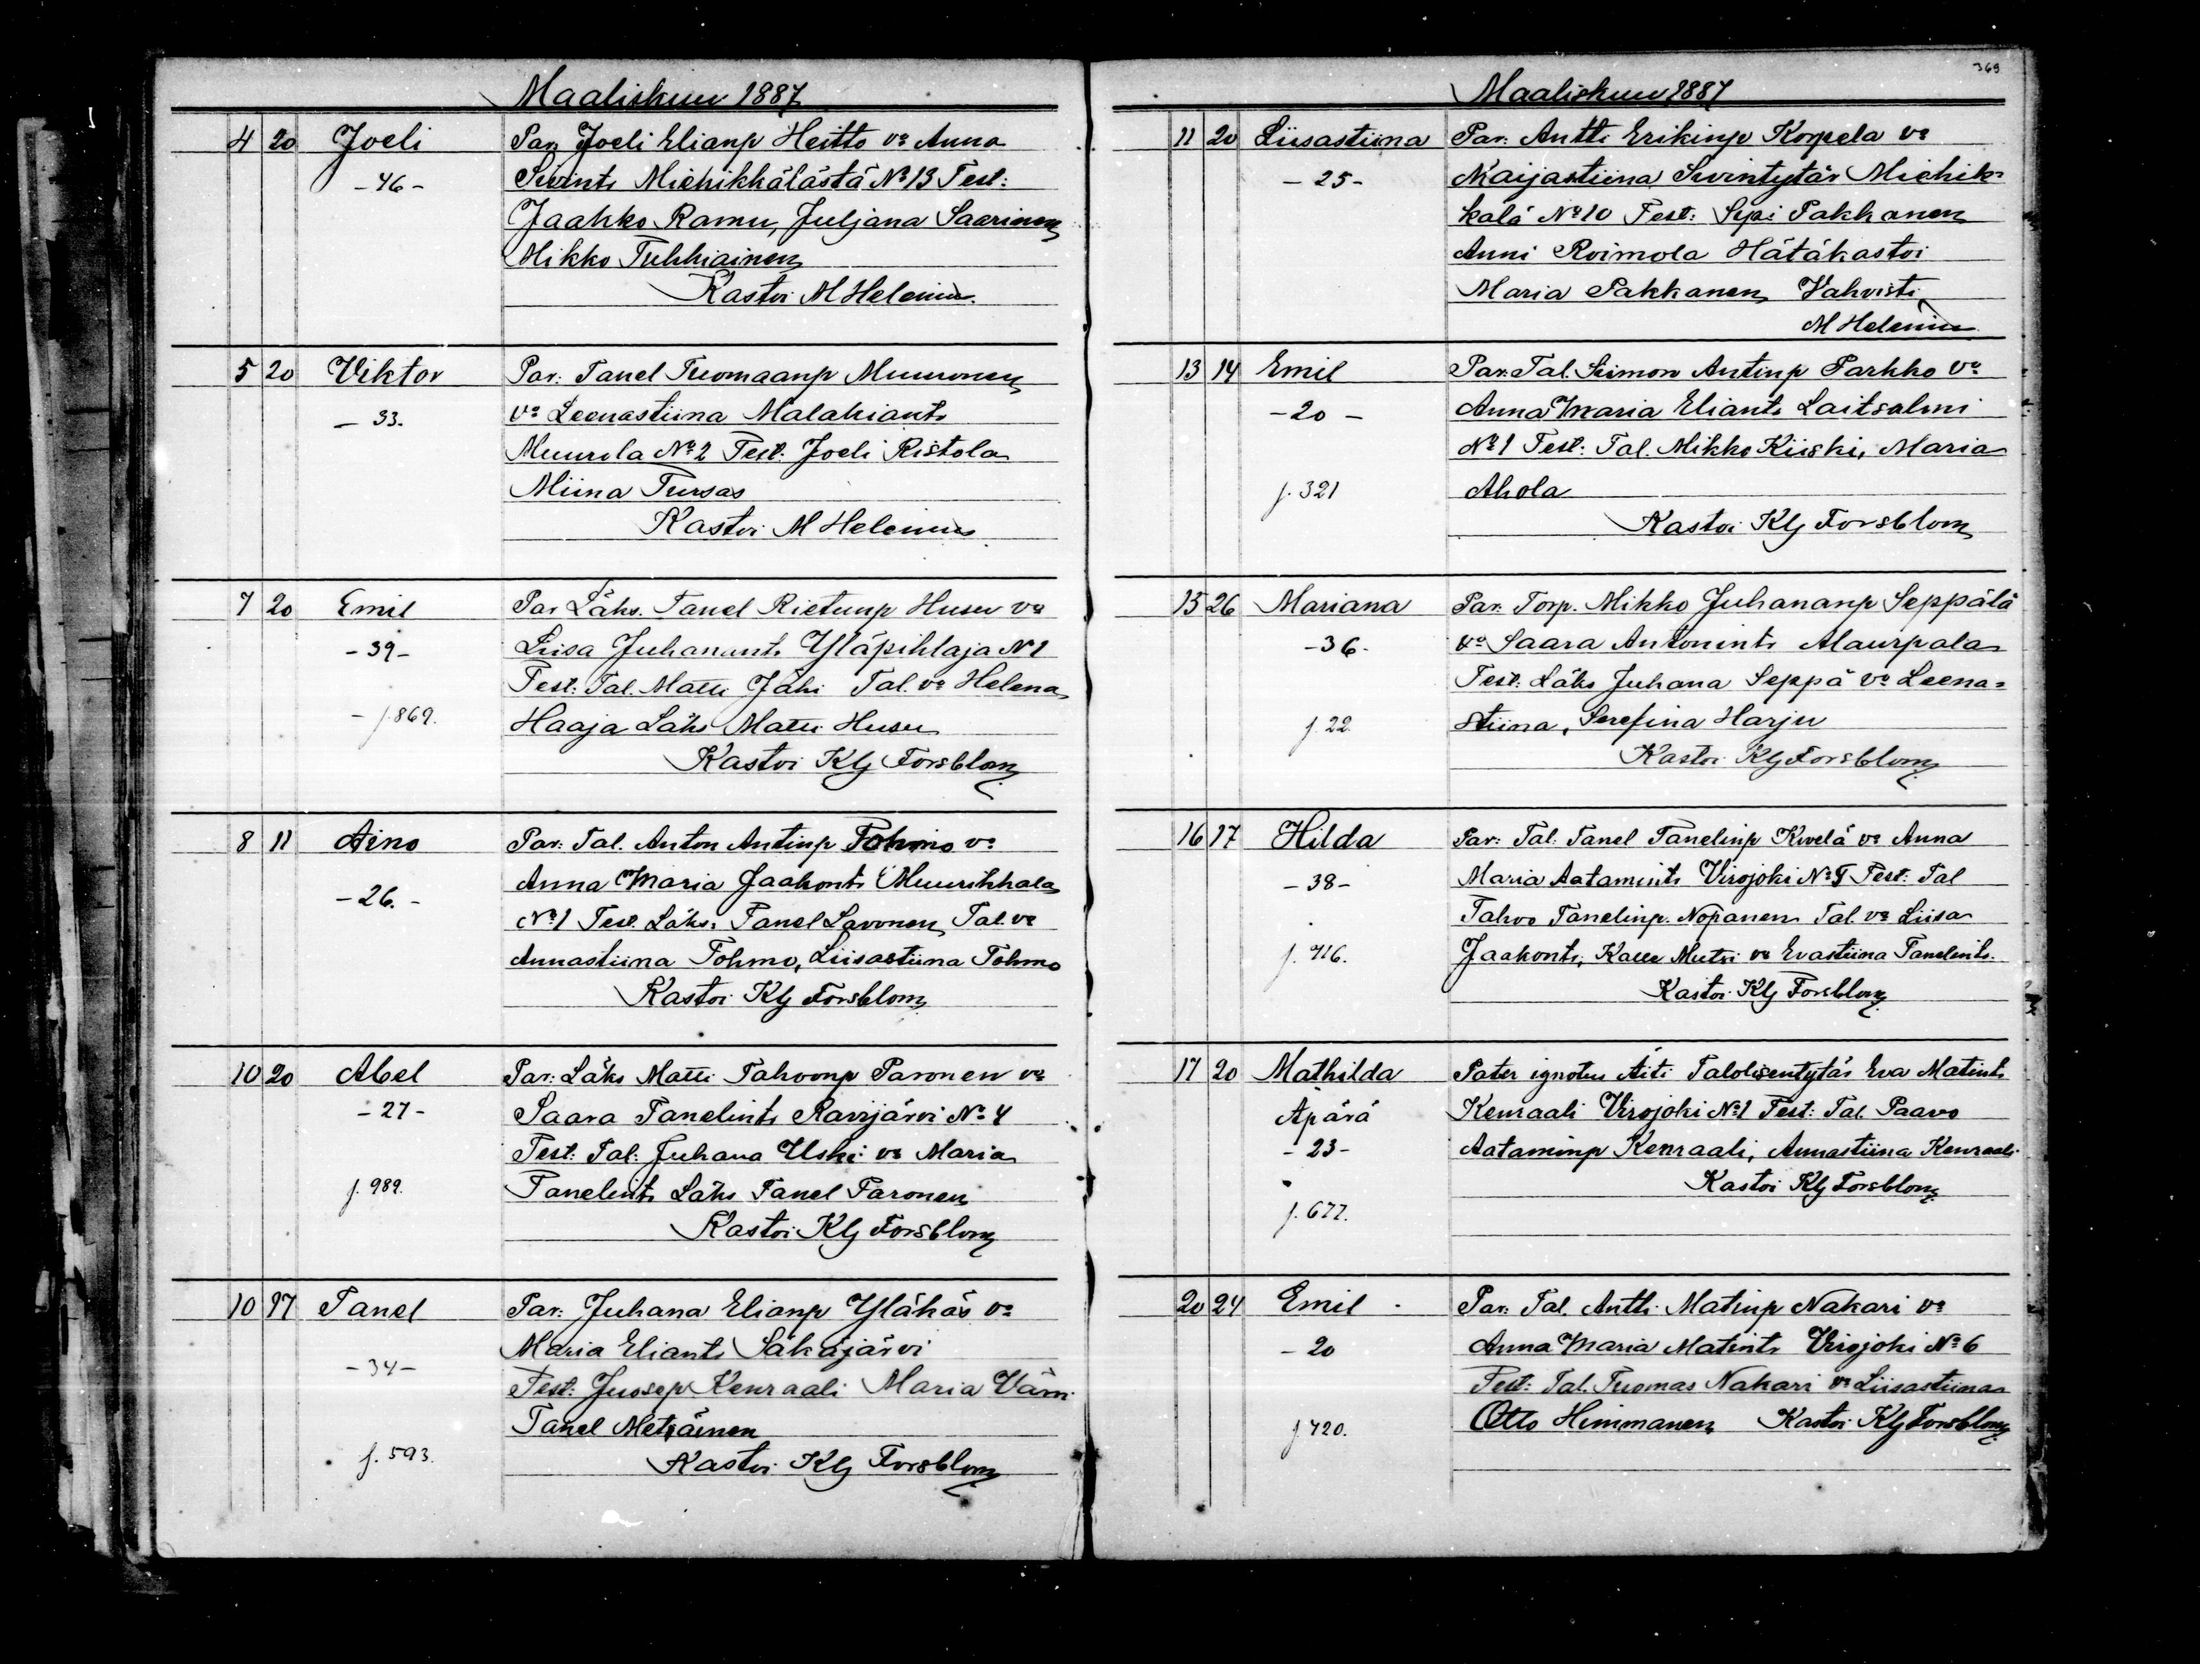 Maaliskuu 1887
4 20 Joeli Par. Joeli Elianp Heitto va Anna
-46- Sivints Miehikkälästä No 13 Test:
Jaakko Ramu, Juljana Saarinen
Mikko Tuhkiainen
Kastoi M Helenius
5 20 Viktor Par: Tanel Tuomaanp Muuronen
-33. va Leenastiina Malakiants
Muurola No 2 Test: Joeli Ristola
Miina Tursas
Kastoi M Helenius
7 20 Emil Par Läks. Tanel Rietunp Husu va
-39- Liisa Juhanants Yläpihlaja No 1
Test: Tal. Matti Jähi Tal. va Helena
- f. 869. Haaja Läks Matti Husu
Kastoi Klj Forsblom
8 11 Aino Par: Tal. Anton Antinp Tohmo va
-26.- Anna Maria Jaakonts Muurikkala
No 1 Test. Läks: Tanel Lavonen Tal. va
Annastiina Tohmo, Liisastiina Tohmo
Kastoi Klj Forsblom
10 20 Abel Par: Läks Matti Tahvonp Paronen va
-27- Saara Tanelints Ravijärvi No 4
Test: Tal: Juhana Uski va Maria
f. 989. Tanelints Läks Tanel Paronen
Kastoi Klj Forsblom
10 17 Tanel Par: Juhana Elianp Ylähäs va
-34- Maria Eliants Säkäjärvi
Test: Juosep Kenraali Maria
Tanel Metsäinen
f. 593. Kastoi Klj Forsblom
369
Maaliskuu 1887
11 20 Liisastiina Par: Antti Erikinp Korpela va
-25- Maijastiina Sivintytär Miehik-
kälä No 10 Test: Sipi Pakkanen
Anni Roimola Hätäkastoi
Maria Pakkanen Vahvisti
M Helenius
13 14 Emil Par: Tal. Seimon Antinp Parkko va
-20- Anna Maria Eliants Laitsalmi
No 1 Test: Tal. Mikko Kiiski, Maria
f. 321 Ahola
Kastoi Klj Forsblom
15 26 Mariana Par: Torp. Mikko Juhananp Seppälä
-36- va Saara Antonints Alaurpala
Test: Läks Juhana Seppä va Leena-
f. 22. stiina, Serefina Harju
Kastoi Klj Forsblom
16 17 Hilda Par: Tal: Tanel Tanelinp Kivelä va Anna
-38- Maria Aatamints Virojoki No 5 Test: Tal
Tahvo Tanelinp. Nopanen Tal. va Liisa
f. 716. Jaakonts, Kalle Mutsi va Evastiina Tanelints.
Kastoi Klj Forsblom
17 20 Mathilda Pater ignotus Äiti Talolisentytär Eva Matints
Äpärä Kenraali Virojoki No 1 Test: Tal. Paavo
-23- Aataminp Kenraali, Annastiina Kenraali
Kastoi Klj Forsblom
f. 677.
20 24 Emil Par: Tal. Antti Matinp Nakari va
-20 Anna Maria Matints Virojoki No 6
Test: Tal. Tuomas Nakari va Liisastiina
f. 720. Otto Himmanen, Kastoi Klj Forsblom